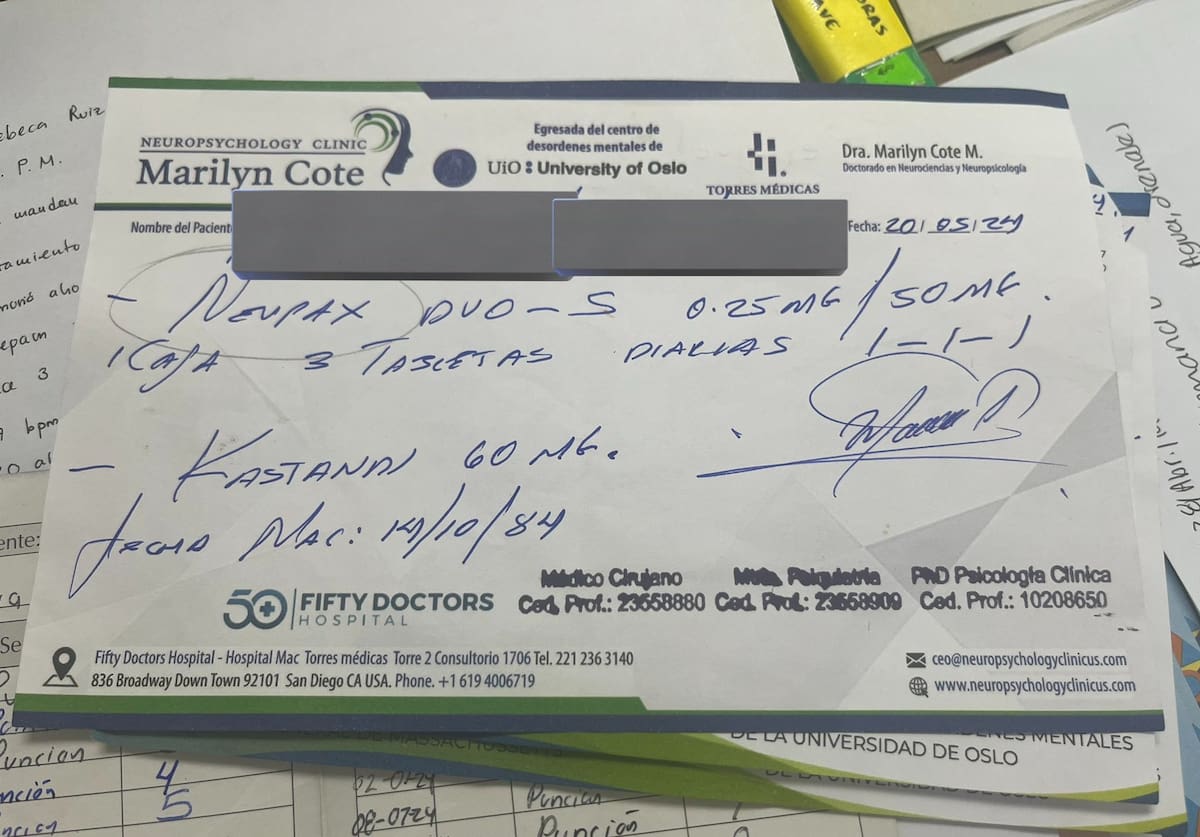 NEUROPSYCHOLOGY CLINIC
Marilyn Cote
Egresada del centro de
desordenes mentales de
UiO: University of Oslo
TORRES MÉDICAS
Dra. Marilyn Cote M.
Doctorado en Neurociencias y Neuropsicología
Nombre del Pacient
Fecha: 20/05/24
- NEUPAX DUO-S 0.25 MG/50 MG.
1 CAJA 3 TABLETAS DIARIAS 1-1-1
- KASTANDI 60 MG.
FECHA MAC: 14/10/84
50 FIFTY DOCTORS
HOSPITAL
Médico Cirujano
Ced. Prof.: 23558880
Psiquiatria
Ced. Prof.: 23558909
PhD Psicología Clínica
Ced. Prof.: 10208650
Fifty Doctors Hospital - Hospital Mac Torres médicas Torre 2 Consultorio 1706 Tel. 221 236 3140
836 Broadway Down Town 92101 San Diego CA USA. Phone. +1 619 4006719
ceo@neuropsychologyclinicus.com
www.neuropsychologyclinicus.com
ebeca Ruiz
P.M.
mandan
amiento
epam
3
bpm
ente:
Se
DE LA UNIVERSIDAD DE OSLO
MENTALES
Puncian
nción
4
5
02-07-24
08-07-24
Puncian
Punción